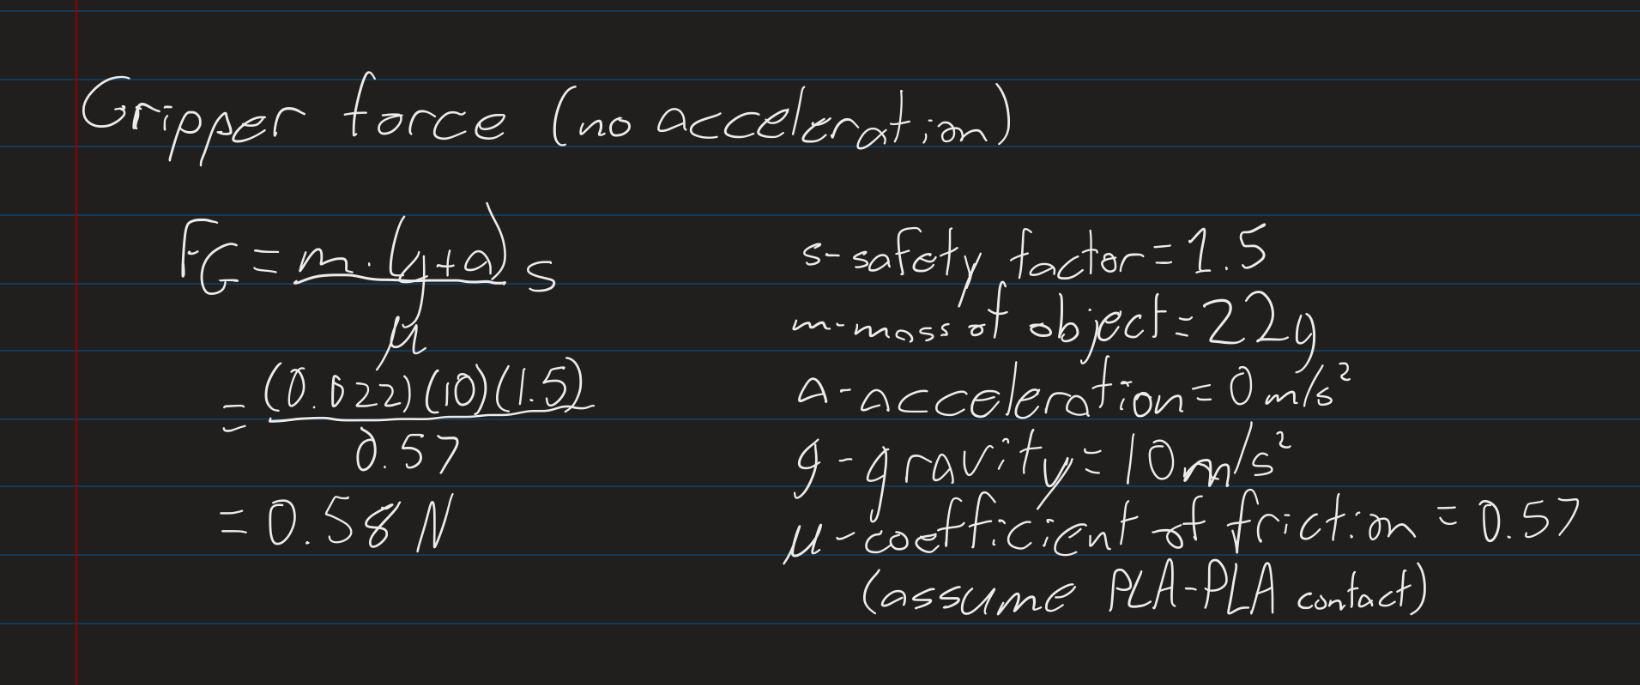 Gripper force (no acceleration)
F_G = m·(g+a) s
μ
= (0.022)(10)(1.5)
0.57
= 0.58 N
s-safety factor = 1.5
m-mass of object = 22g
a-acceleration = 0 m/s²
g-gravity = 10 m/s²
μ-coefficient of friction = 0.57
(assume PLA-PLA contact)